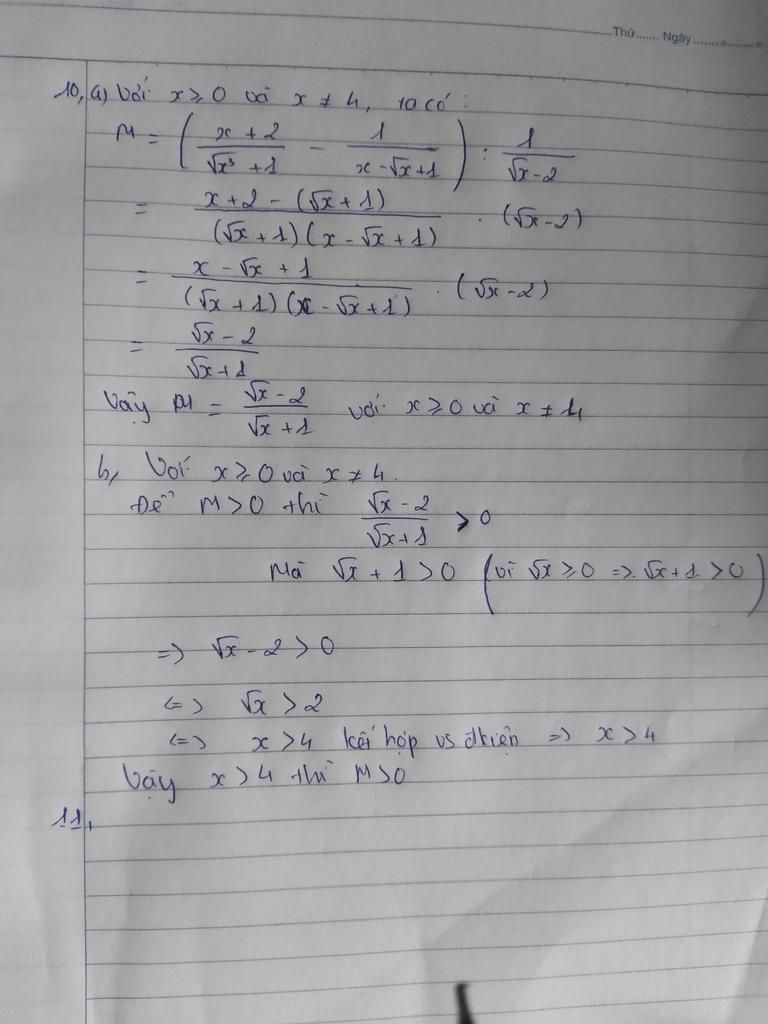 Thứ....... Ngày.................
10, a) Với x ≥ 0 và x ≠ 4, ta có :
M = ( (x + 2)/(√x³ + 1) - 1/(x - √x + 1) ) : 1/(√x - 2)
= (x + 2 - (√x + 1))/((√x + 1)(x - √x + 1)) . (√x - 2)
= (x - √x + 1)/((√x + 1)(x - √x + 1)) . (√x - 2)
= (√x - 2)/(√x + 1)
Vậy M = (√x - 2)/(√x + 1) với x ≥ 0 và x ≠ 4
b, Với x ≥ 0 và x ≠ 4.
Để M > 0 thì (√x - 2)/(√x + 1) > 0
Mà √x + 1 > 0 (vì √x ≥ 0 => √x + 1 > 0)
=> √x - 2 > 0
<=> √x > 2
<=> x > 4 kết hợp vs đkiện => x > 4
Vậy x > 4 thì M > 0
11,